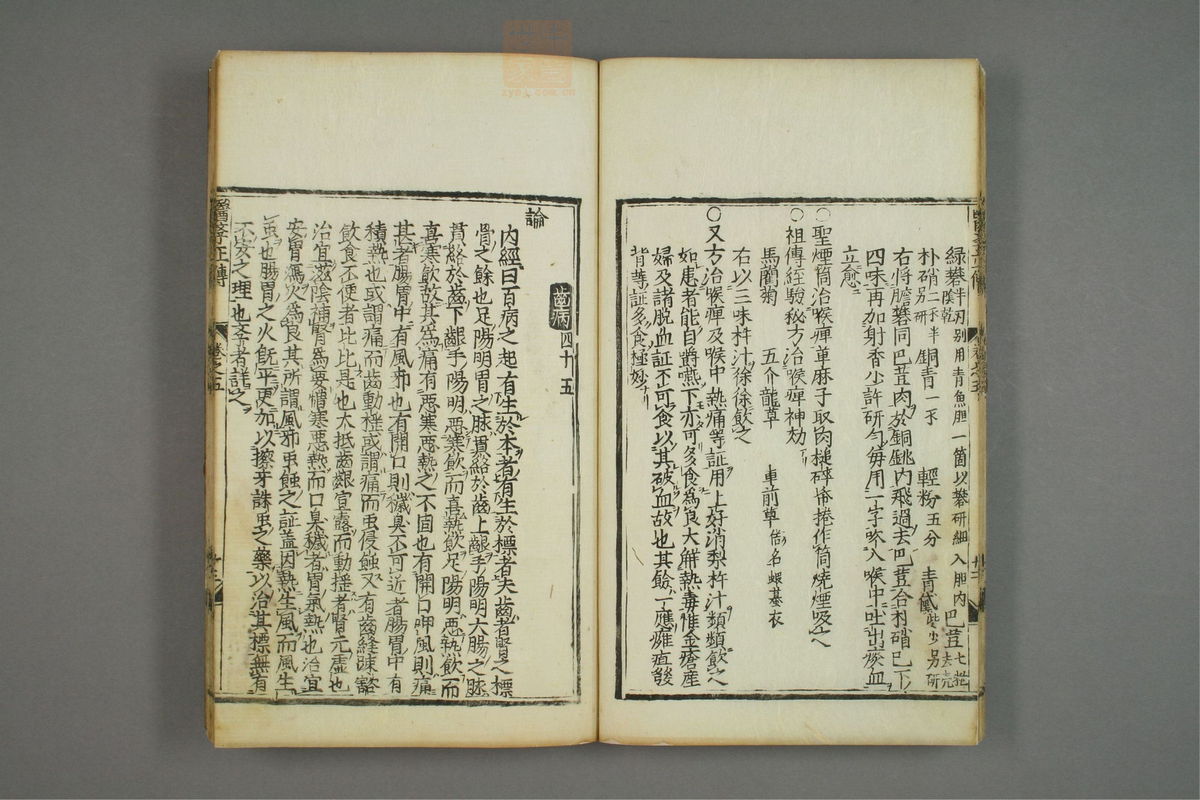 綠礬半刃别用青魚胆一箇以礬研細入胆内陰乾 巴荳七粒去壳
朴硝二錢半别研 銅青一錢 輕粉五分 青黛些少另研
右將膽礬同巴荳肉於銅銚内飛過去巴荳合朴硝已下
四味再加射香少許研勻每用一字吹入喉中吐出痰血
立愈
○聖煙筒治喉痺萆麻子取肉槌碎帋捲作筒燒煙吸之
○祖傳經驗秘方治喉痺神効
馬藺菊 五介龍草 車前草俗名蝦蟇衣
右以三味杵汁徐徐飲之
○又方治喉痺及喉中熱痛等証用上好消梨杵汁頻頻飲之
如患者能自嚼嚥下亦可多食爲良大觧熱毒惟金瘡産
婦及諸脱血証不可食以其破血故也其餘一應癰疽發
背等証多食極妙
齒病四十五
論
内經曰百病之起有生於本者有生於標者夫齒者腎之標
骨之餘也足陽明胃之脉貫絡於齒上齦手陽明大腸之脉
貫絡於齒下齦手陽明惡寒飲而喜熱飲足陽明惡熱飲而
喜寒飲故其爲痛有惡寒惡熱之不同也有開口呷風則痛
甚者腸胃中有風邪也有開口則穢臭不可近者腸胃中有
積熱也或謂痛而齒動揺或謂痛而虫侵蝕又有齒縫疎豁
飲食不便者比比是也大抵齒齦宣露而動揺者腎元虚也
治宜滋陰補腎爲要憎寒惡熱而口臭穢者胃氣熱也治宜
安胃瀉火爲良其所謂風邪虫蝕之証盖因熱生風而風生
虫也腸胃之火旣平更加以擦牙誅虫之藥以治其標無有
不安之理也李者詳之
醫學正傳 卷之五